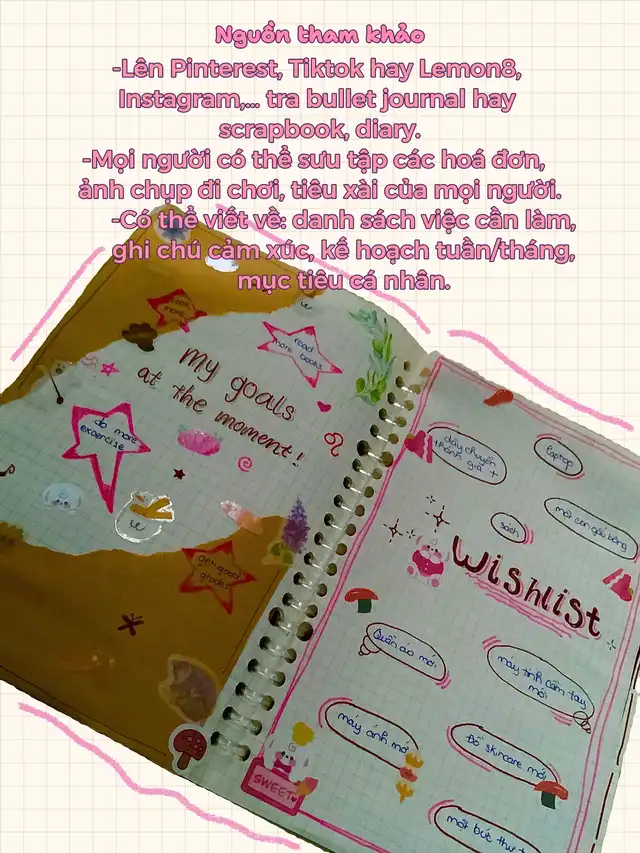 Nguồn tham khảo
-Lên Pinterest, Tiktok hay Lemon8,
Instagram,... tra bullet journal hay
scrapbook, diary.
-Mọi người có thể sưu tập các hoá đơn,
ảnh chụp đi chơi, tiêu xài của mọi người.
-Có thể viết về: danh sách việc cần làm,
ghi chú cảm xúc, kế hoạch tuần/tháng,
mục tiêu cá nhân.
more
read
more books
my goals
at the moment!
do more
exoercise
get good
grades
dây chuyền
thánh giá
laptop
một con gấu bông
sách
Wishlist
Quần áo mới
máy tính cầm tay
mới
máy ảnh mới
Đồ skincare mới
một bức thư
SWEET